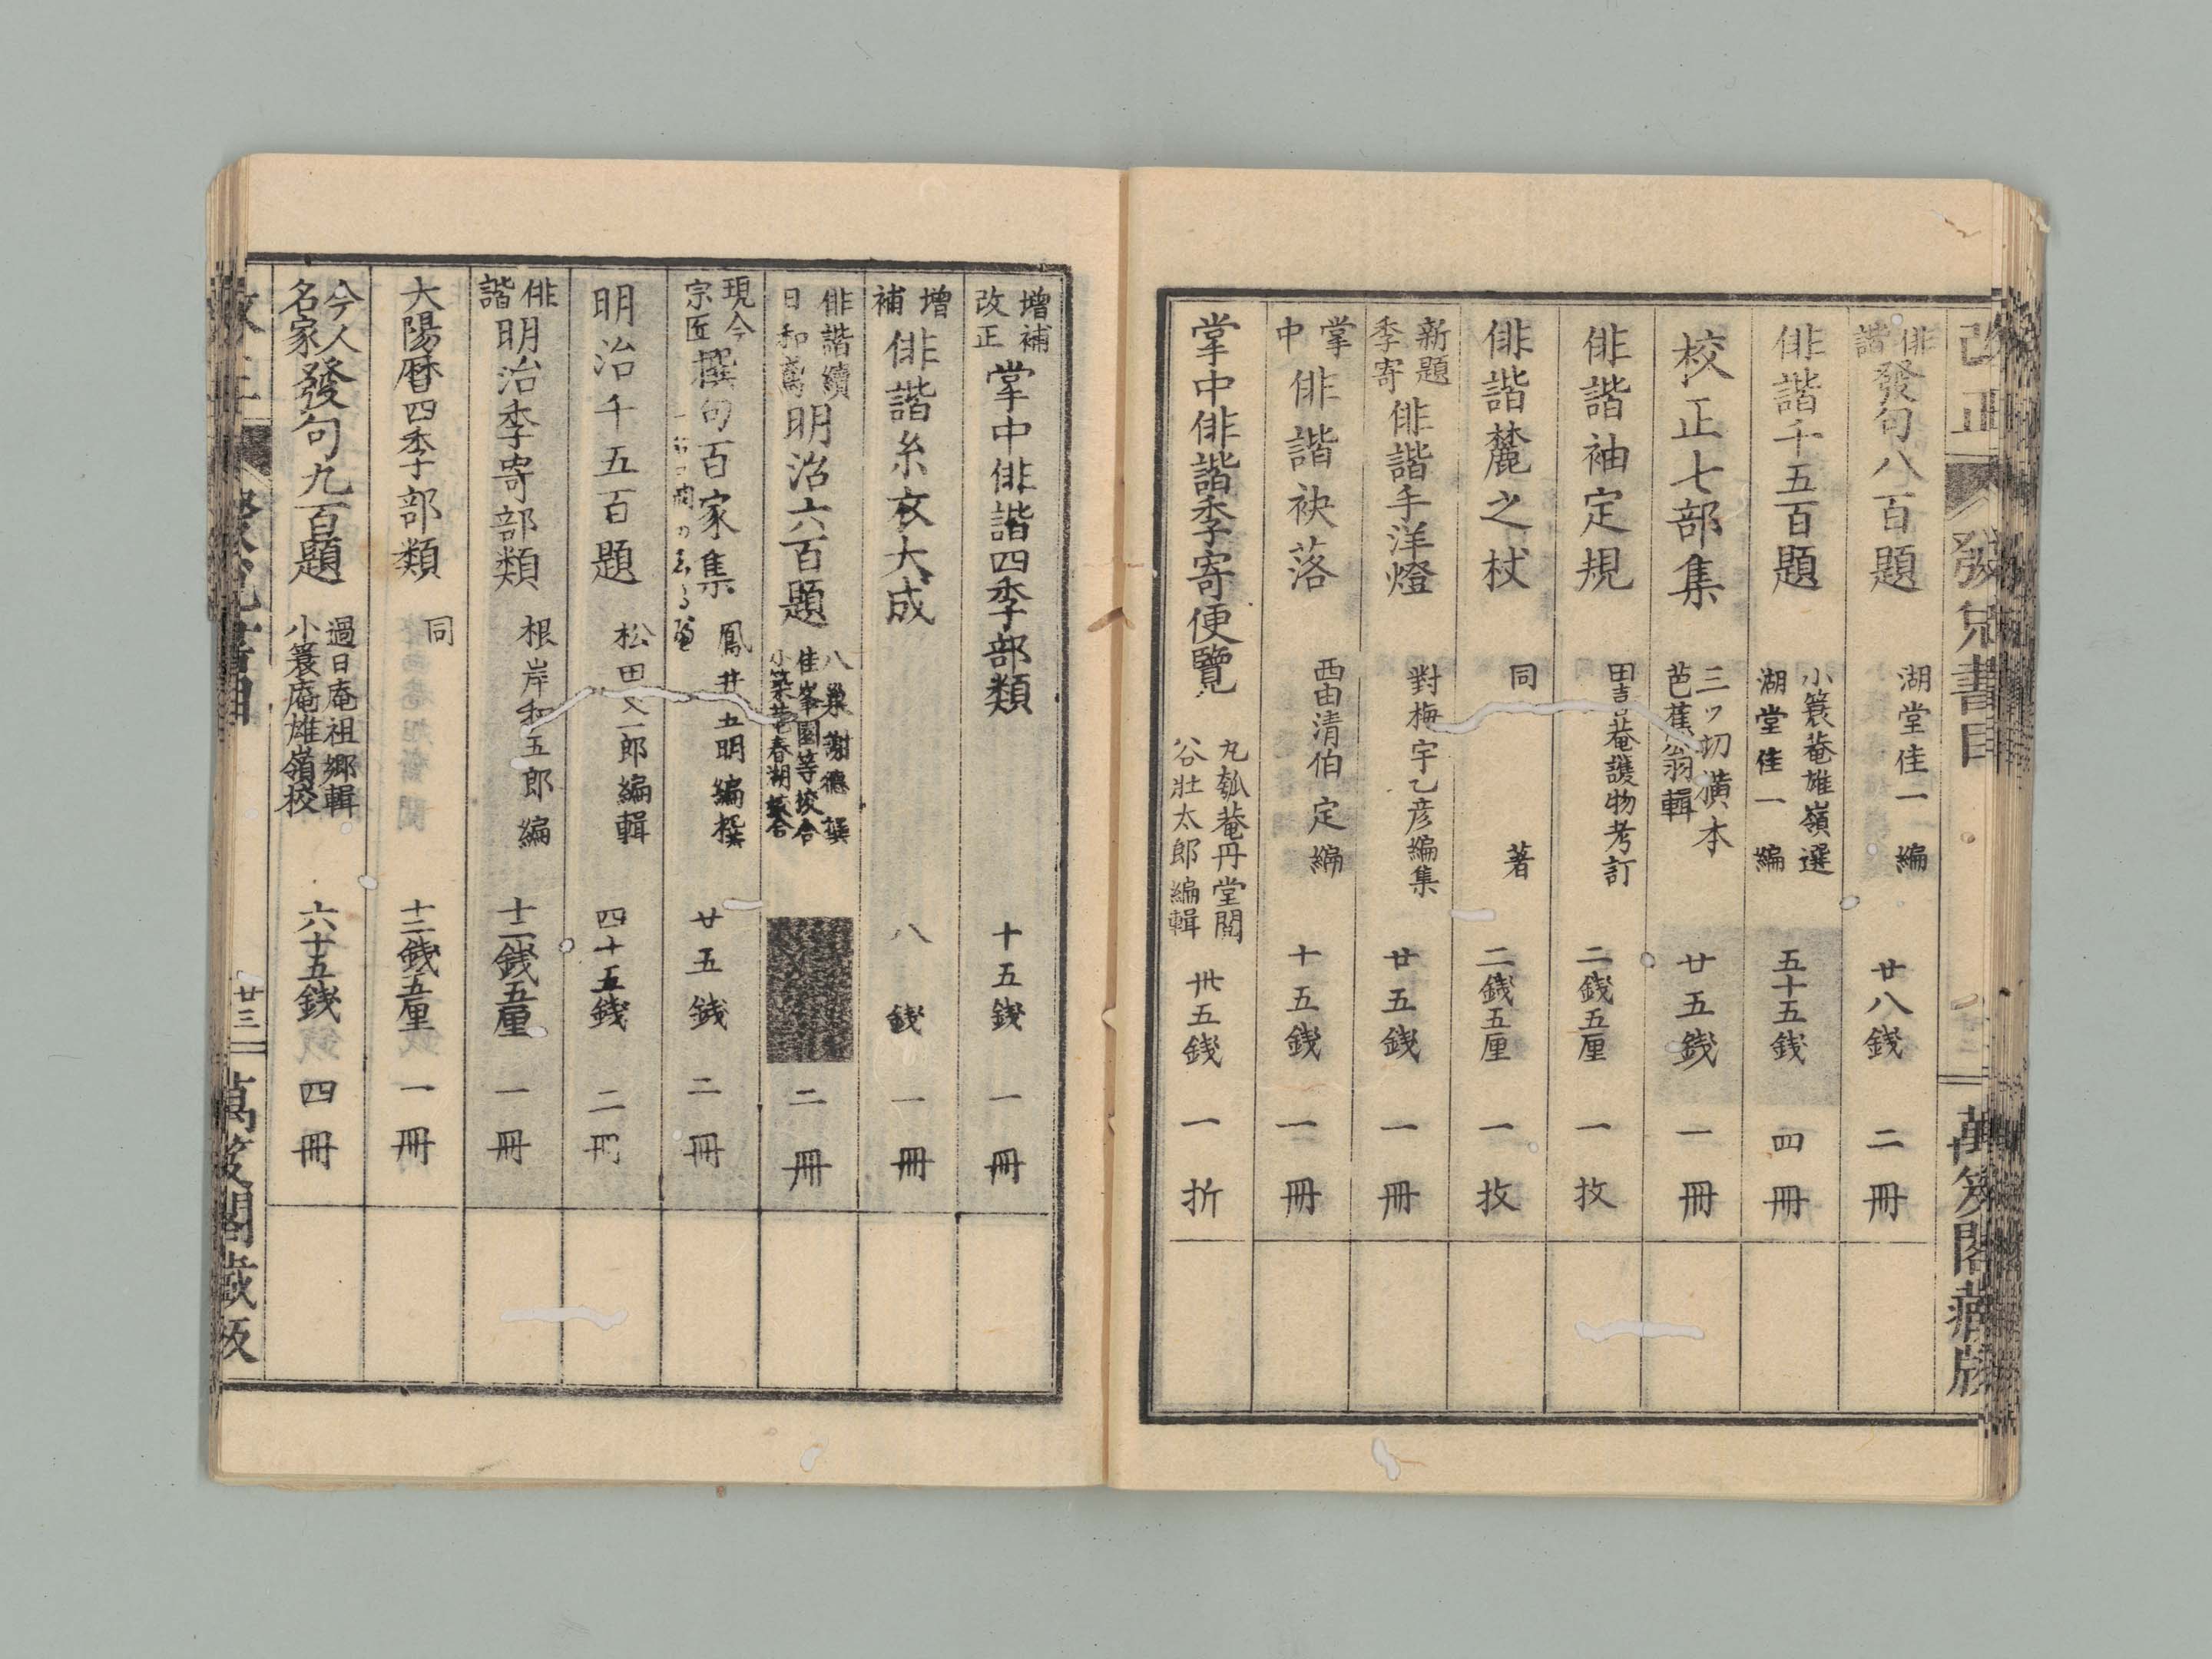 改正 發兌書目 萬笈閣藏版
俳諧 發句八百題 湖堂佳一編 廿八錢 二冊
俳諧千五百題 小簑菴雄嶺選 湖堂佳一編 五十五錢 四冊
校正七部集 三ツ切横本 芭蕉翁輯 廿五錢 一冊
俳諧袖定規 田喜菴護物考訂 二錢五厘 一枚
俳諧麓之杖 同著 二錢五厘 一枚
新題季寄 俳諧手洋燈 對梅宇乙彦編集 廿五錢 一冊
掌中 俳諧袂落 西由清伯定編 十五錢 一冊
掌中俳諧季寄便覽 九瓠菴丹堂閲 谷壯太郎編輯 卅五錢 一折
增補改正 掌中俳諧四季部類 十五錢 一冊
增補 俳諧糸衣大成 八錢 一冊
俳諧續日和鳶 明治六百題 八巣謝德撰 佳峯園等栽合 小築菴春湖 二冊
現今宗匠 撰句百家集 鳳井五明編撰 廿五錢 二冊
明治千五百題 松田 一郎編輯 四十五錢 二冊
俳諧 明治季寄部類 根岸和五郎編 十二錢五厘 一冊
大陽曆四季部類 同 十二錢五厘 一冊
今人名家 發句九百題 過日庵祖郷輯 小簑庵雄嶺校 六十五錢 四冊
廿三 萬笈閣藏版